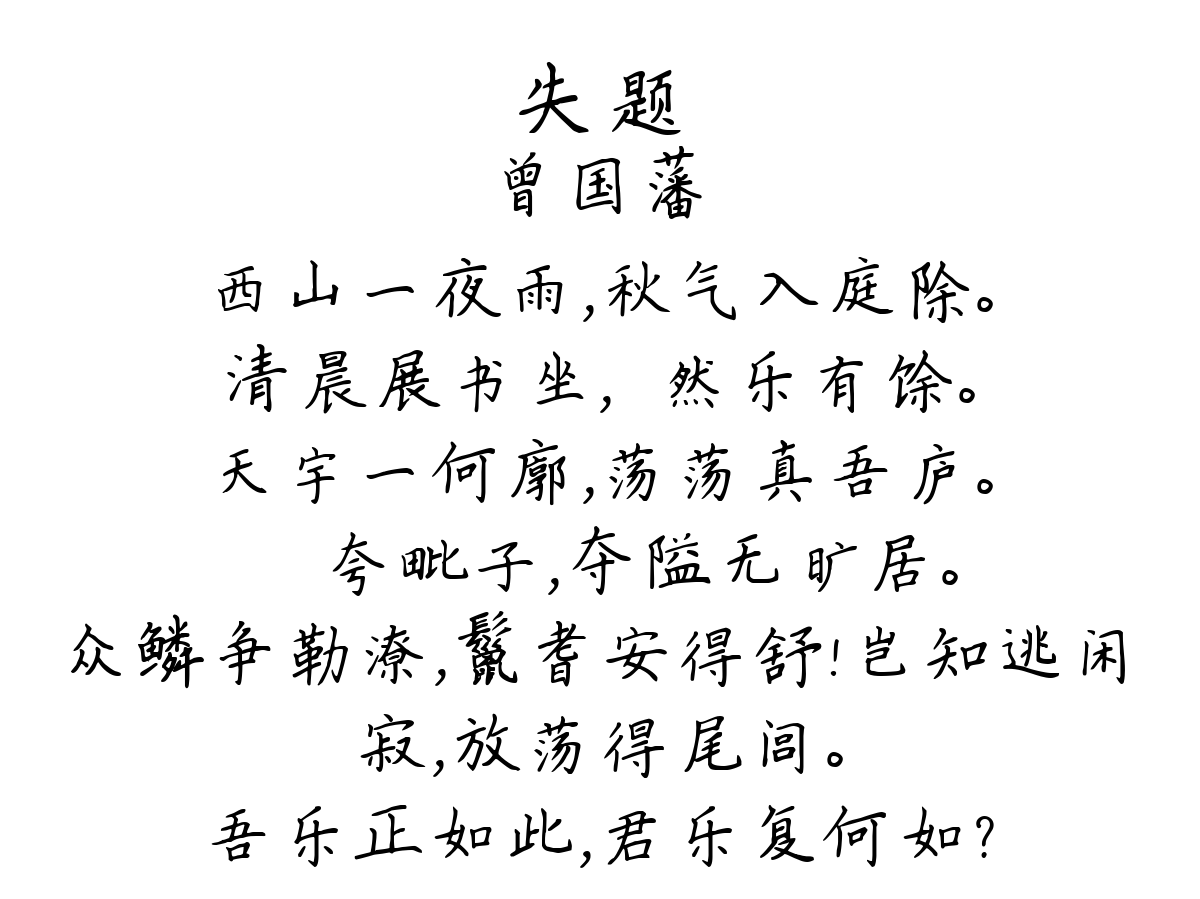 失题
曾国藩
西山一夜雨,秋气入庭除。
清晨展书坐，然乐有馀。
天宇一何廓,荡荡真吾庐。
夸毗子,夺隘无旷居。
众鳞争勒潦,鬣耆安得舒!岂知逃闲
寂,放荡得尾闾。
吾乐正如此,君乐复何如?